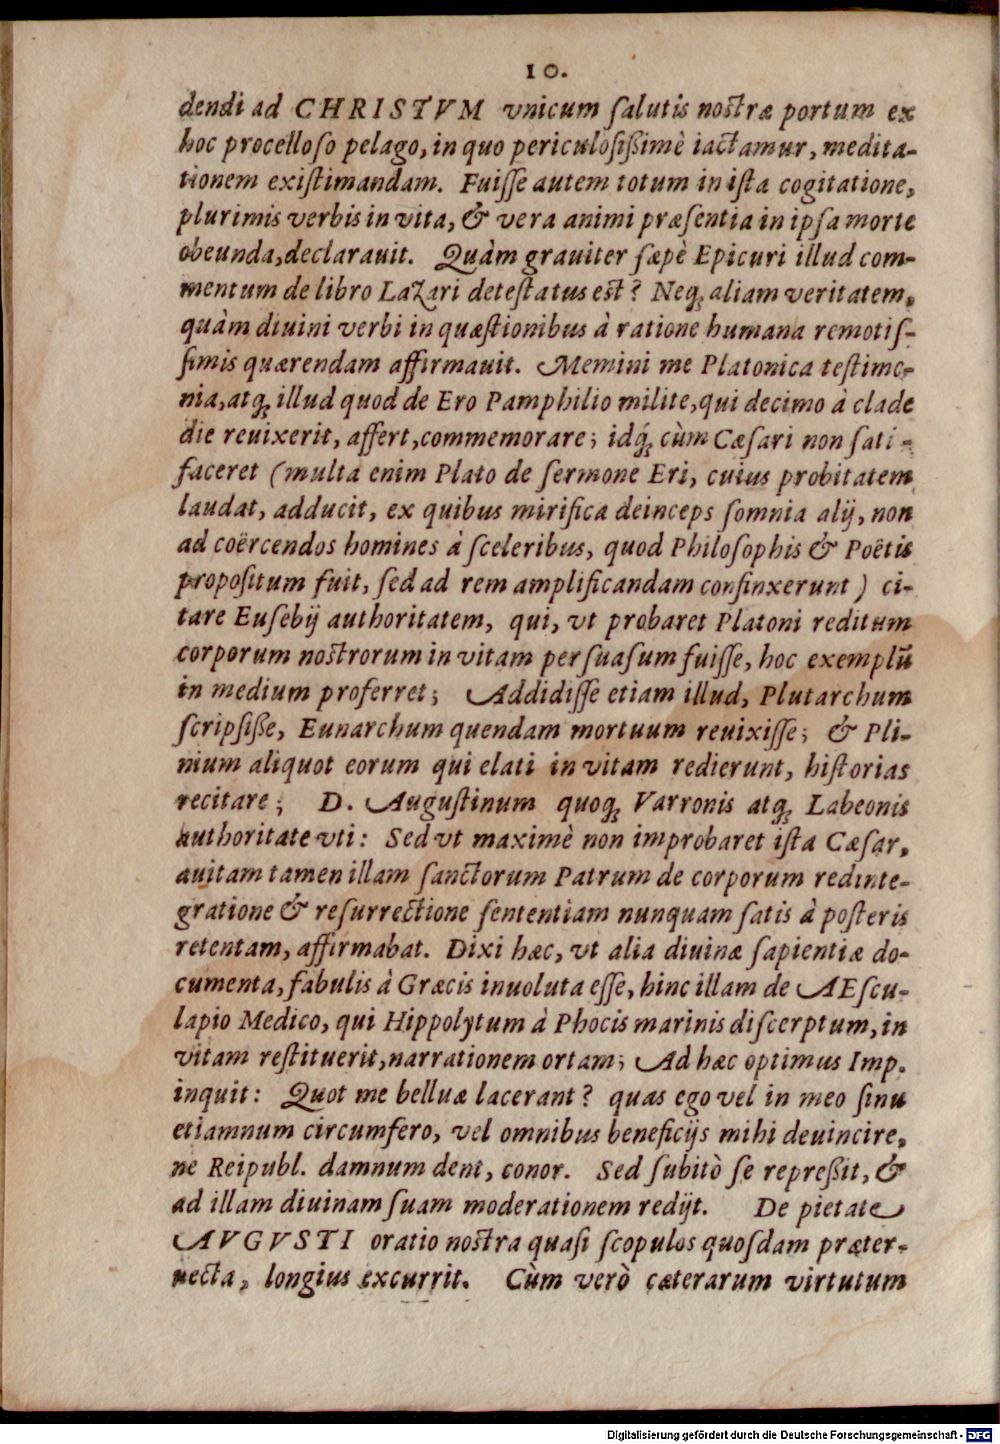 10.
dendi ad CHRISTVM vnicum ſalutis noſtræ portum ex
hoc procelloſo pelago, in quo periculoſißimè iactamur, medita-
tionem exiſtimandam. Fuiſſe autem totum in iſta cogitatione,
plurimis verbis in vita, & vera animi præſentia in ipſa morte
obeunda, declarauit. Quàm grauiter ſæpè Epicuri illud com-
mentum de libro Lazari deteſtatus est? Neq; aliam veritatem,
quàm diuini verbi in quæſtionibus à ratione humana remotiſ-
ſimis quærendam affirmauit. Memini me Platonica teſtimo-
nia, atq; illud quod de Ero Pamphilio milite, qui decimo à clade
die reuixerit, affert, commemorare; idq́; cùm Cæſari non ſati-
faceret (multa enim Plato de ſermone Eri, cuius probitatem
laudat, adducit, ex quibus mirifica deinceps ſomnia alij, non
ad coërcendos homines à ſceleribus, quod Philoſophis & Poëtis
propoſitum fuit, ſed ad rem amplificandam confinxerunt) ci-
tare Euſebij authoritatem, qui, vt probaret Platoni reditum
corporum noſtrorum in vitam perſuaſum fuiſſe, hoc exemplū
in medium proferret; Addidiſſe etiam illud, Plutarchum
ſcripſiße, Eunarchum quendam mortuum reuixiſſe; & Pli-
nium aliquot eorum qui elati in vitam redierunt, hiſtorias
recitare; D. Auguſtinum quoq; Varronis atq; Labeonis
authoritate vti: Sed vt maximè non improbaret iſta Cæſar,
auitam tamen illam ſanctorum Patrum de corporum redinte-
gratione & reſurrectione ſententiam nunquam ſatis à poſteris
retentam, affirmabat. Dixi hæc, vt alia diuinæ ſapientiæ do-
cumenta, fabulis à Græcis inuoluta eſſe, hinc illam de AEſcu-
lapio Medico, qui Hippolytum à Phocis marinis diſcerptum, in
vitam reſtituerit, narrationem ortam; Ad hæc optimus Imp.
inquit: Quot me belluæ lacerant? quas ego vel in meo ſinu
etiamnum circumfero, vel omnibus beneficijs mihi deuincire,
ne Reipubl. damnum dent, conor. Sed ſubitò ſe repreßit, &
ad illam diuinam ſuam moderationem redijt. De pietate
AVGVSTI oratio noſtra quaſi ſcopulos quoſdam præter-
uecta, longius excurrit. Cùm verò cæterarum virtutum
Digitalisierung gefördert durch die Deutsche Forschungsgemeinschaft - DFG